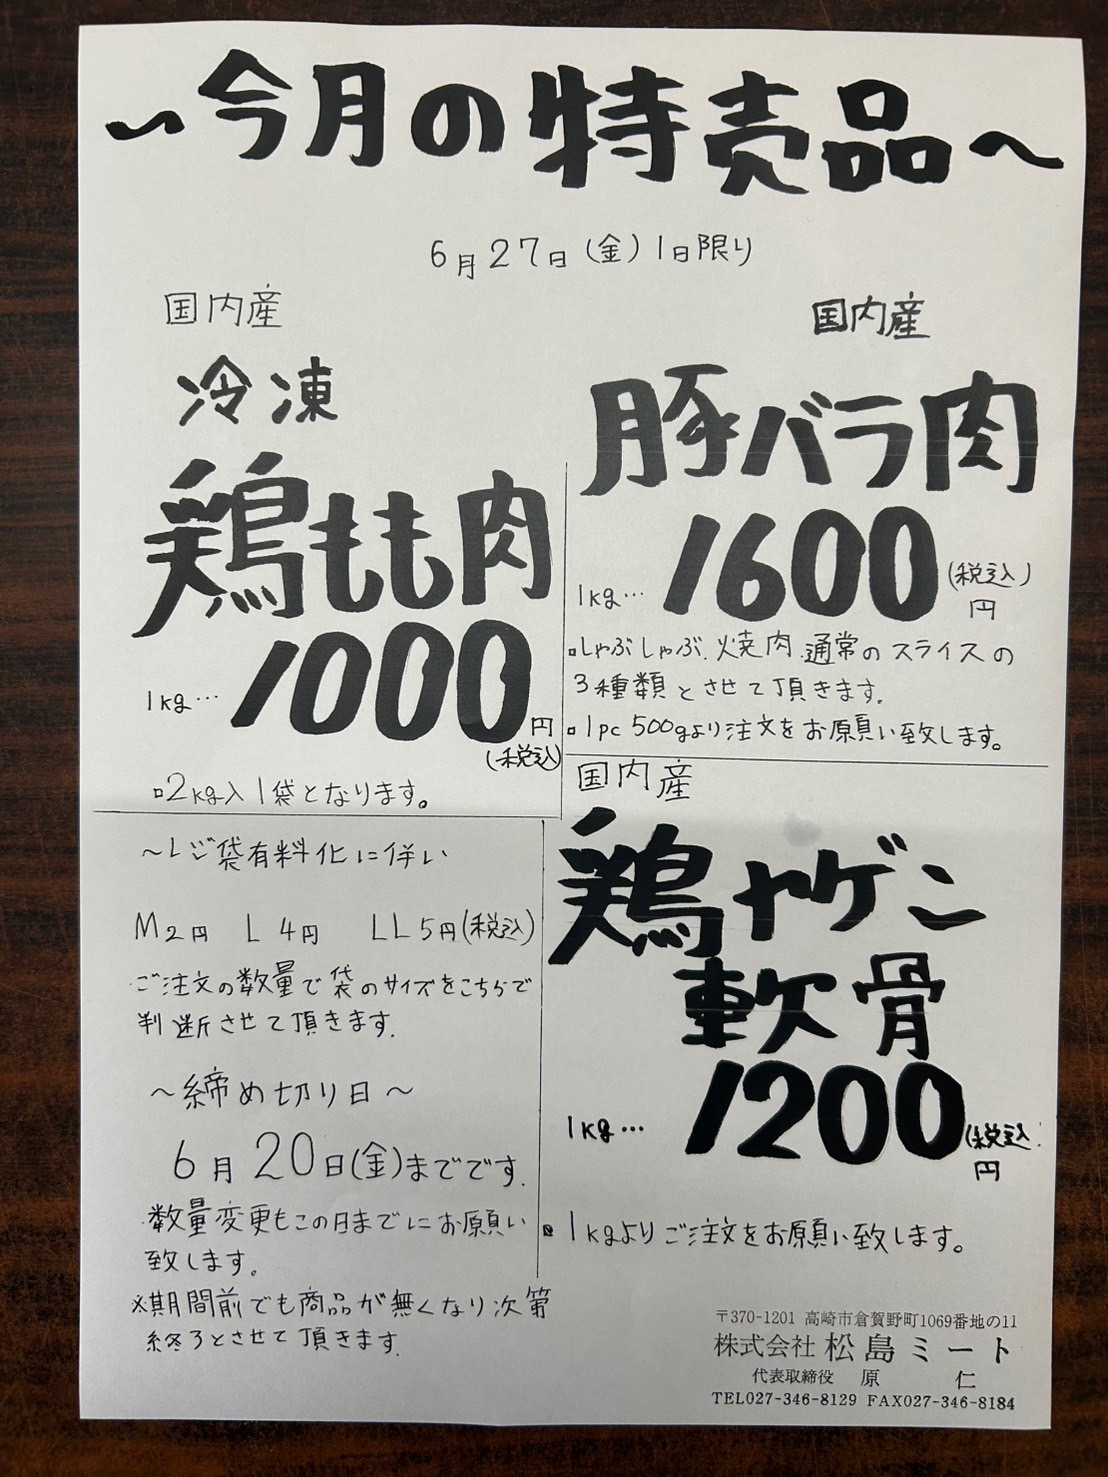 ～今月の特売品～
6月27日(金)1日限り
国内産
冷凍
鶏もも肉
1kg… 1000円
(税込)
▫2kg入1袋となります。
国内産
豚バラ肉
1kg… 1600円(税込)
▫しゃぶしゃぶ.焼肉.通常のスライスの
3種類とさせて頂きます。
▫1pc 500gより注文をお願い致します。
国内産
鶏ヤゲン
軟骨
1kg… 1200円(税込)
▫1kgよりご注文をお願い致します。
～レジ袋有料化に伴い
M2円 L4円 LL5円(税込)
ご注文の数量で袋のサイズをこちらで
判断させて頂きます.
～締め切り日～
6月20日(金)までです.
数量変更もこの日までにお願い
致します。
※期間前でも商品が無くなり次第
終了とさせて頂きます.
〒370-1201 高崎市倉賀野町1069番地の11
株式会社 松島ミート
代表取締役 原 仁
TEL027-346-8129 FAX027-346-8184